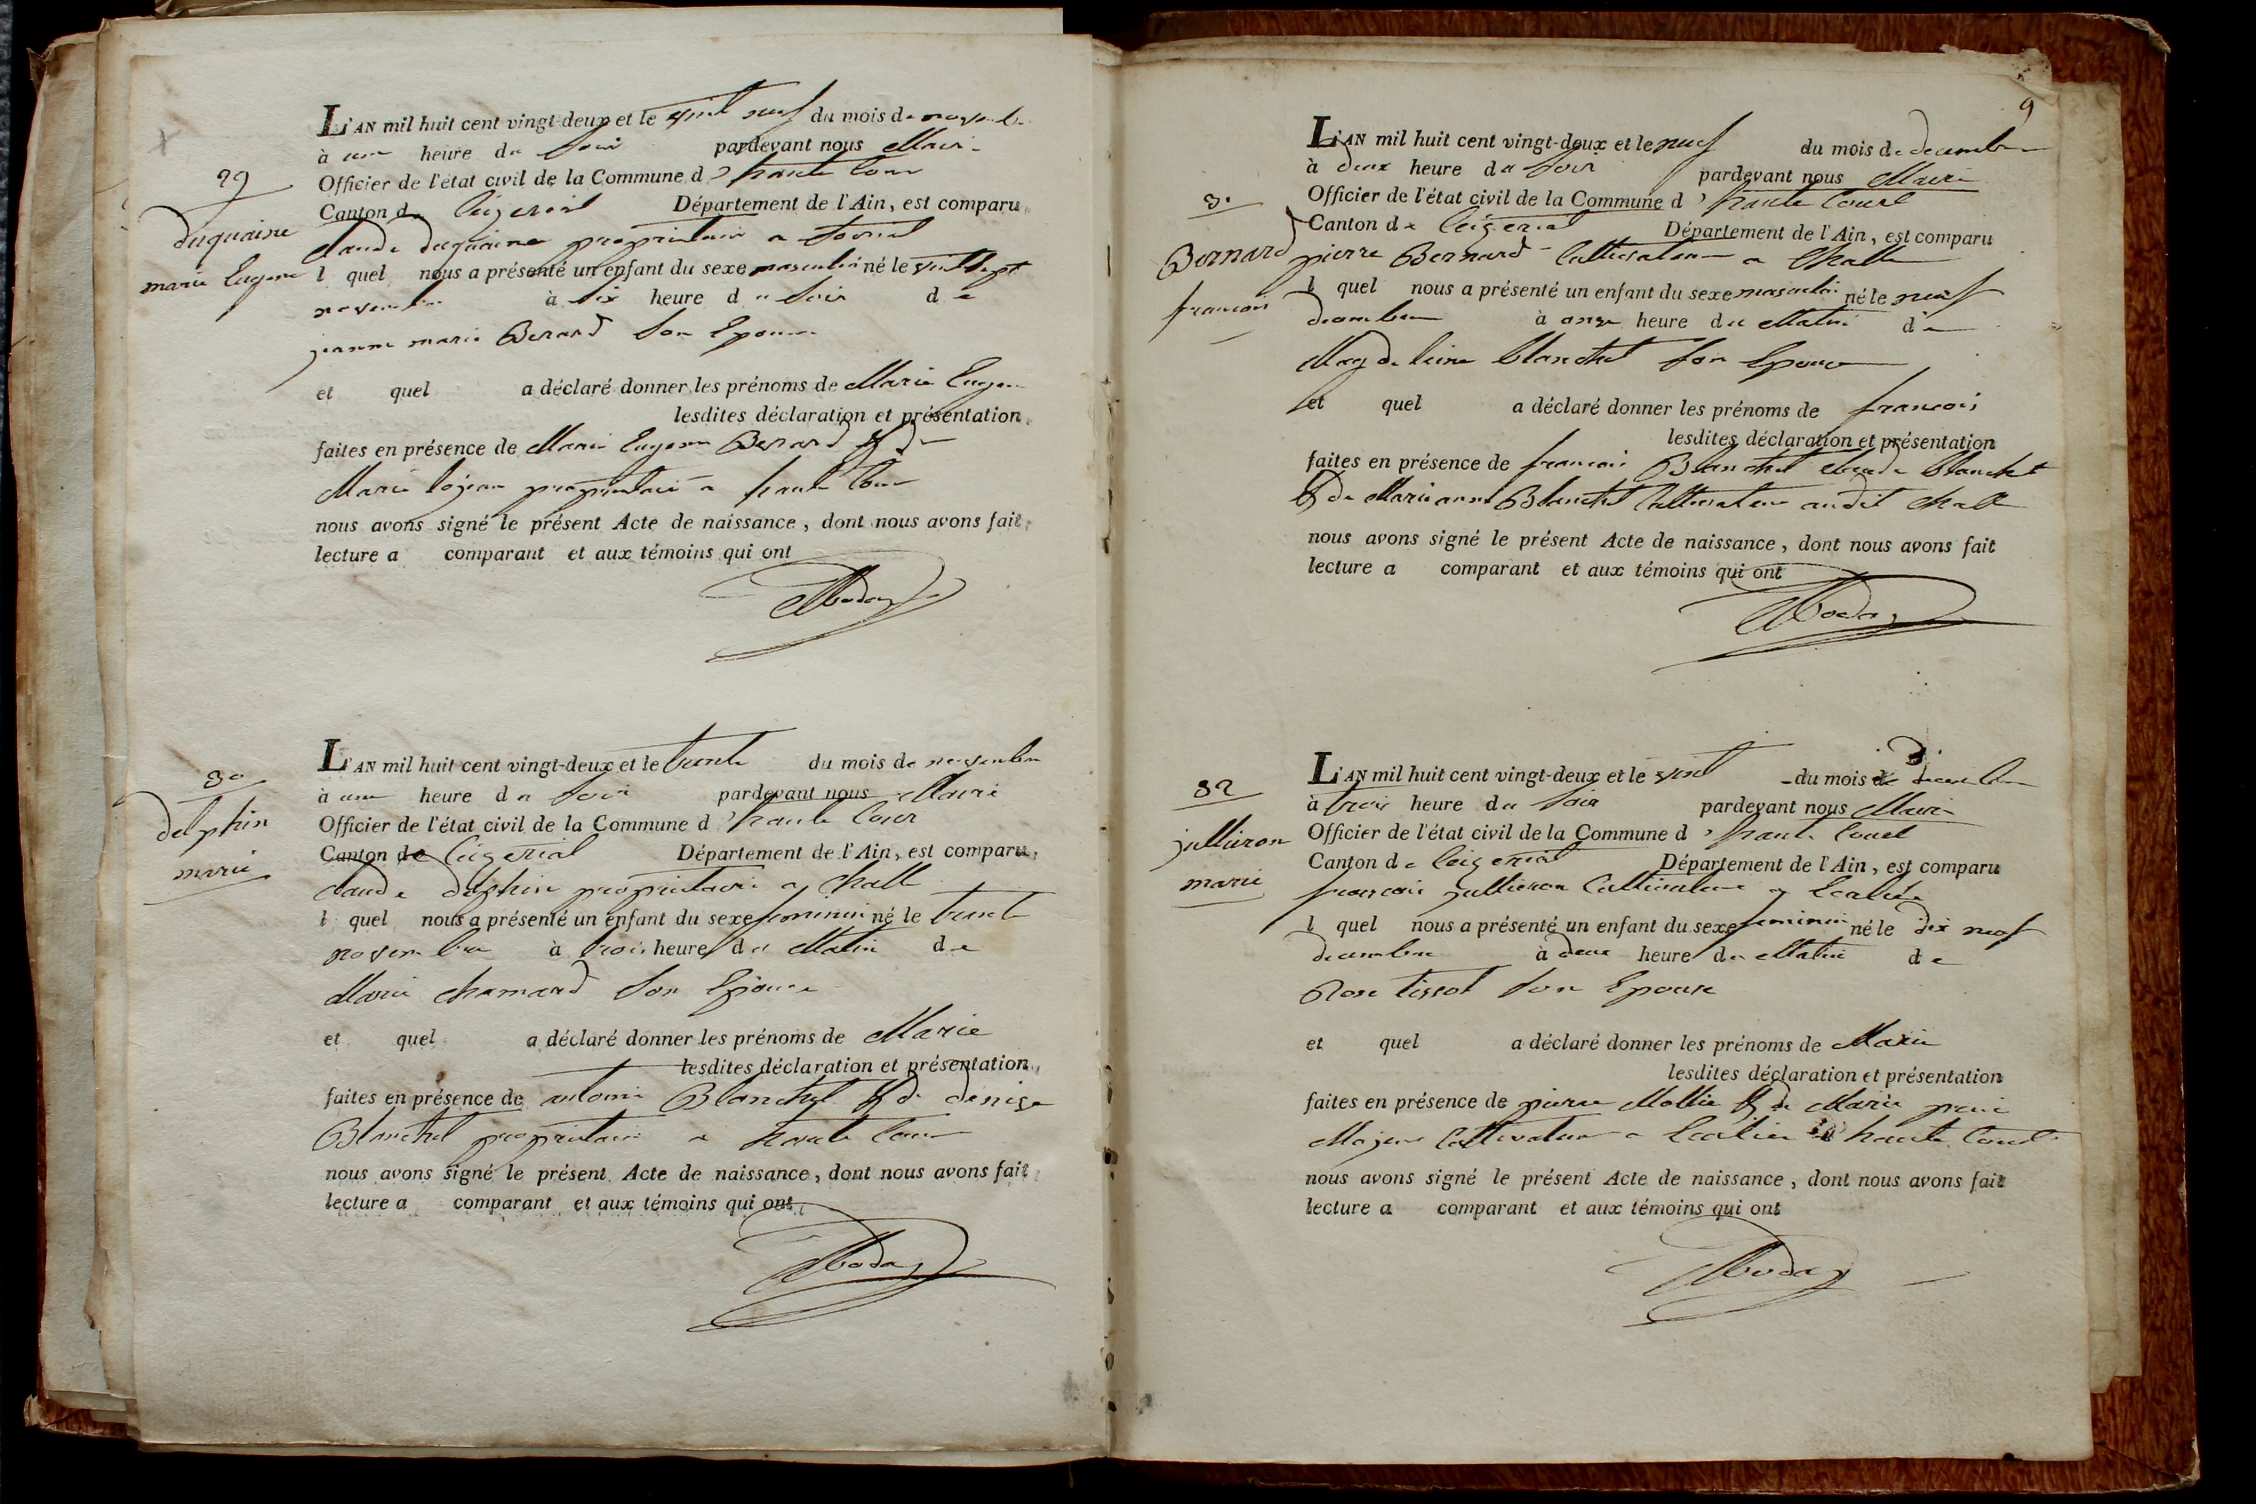 29
duquaire
marie Eugene
L'AN mil huit cent vingt-deux et le vint neuf du mois de novembre
à une heure du soir pardevant nous Maire
Officier de l'état civil de la Commune d'haute Cour
Canton de Ceizeriat Département de l'Ain, est comparu
claude duquaire proprietaire a
l quel nous a présenté un enfant du sexe masculin né le vint sept
novembre à six heure du soir de
jeanne marie Berard son Epouse
et quel a déclaré donner les prénoms de Marie Eugene
lesdites déclaration et présentation
faites en présence de Marie Eugene Berard & de
Marie proprietaire a haute Cour
nous avons signé le présent Acte de naissance, dont nous avons fait
lecture a comparant et aux témoins qui ont
30
delphin
marie
L'AN mil huit cent vingt-deux et le trente du mois de novembre
à une heure du soir pardevant nous Maire
Officier de l'état civil de la Commune d'haute Cour
Canton de Ceizeriat Département de l'Ain, est comparu
claude delphin proprietaire a challe
l quel nous a présenté un enfant du sexe feminin né le trente
novembre à trois heure du Matin de
Marie chamard son Epouse
et quel a déclaré donner les prénoms de Marie
lesdites déclaration et présentation
faites en présence de antoine Blanchet & de denise
Blanchet proprietaire a haute Cour
nous avons signé le présent Acte de naissance, dont nous avons fait
lecture a comparant et aux témoins qui ont
9
3.
Bernard
francois
L'AN mil huit cent vingt-deux et le neuf du mois de decembre
à deux heure du soir pardevant nous Maire
Officier de l'état civil de la Commune d'haute Court
Canton de Ceizeriat Département de l'Ain, est comparu
pierre Bernard Cultivateur a Challe
l quel nous a présenté un enfant du sexe masculin né le neuf
decembre à onze heure du Matin de
Magdeleine blanchet son Epouse
et quel a déclaré donner les prénoms de francois
lesdites déclaration et présentation
faites en présence de francois Blanchet claude blanchet
& de Marie anne Blanchet Cultivateur audit challe
nous avons signé le présent Acte de naissance, dont nous avons fait
lecture a comparant et aux témoins qui ont
32
jullieron
marie
L'AN mil huit cent vingt-deux et le vint du mois de decembre
à trois heure du soir pardevant nous Maire
Officier de l'état civil de la Commune d'haute Court
Canton de Ceizeriat Département de l'Ain, est comparu
francois jullieron Cultivateur a
l quel nous a présenté un enfant du sexe feminin né le dix neuf
decembre à deux heure du Matin de
Rose tissot son Epouse
et quel a déclaré donner les prénoms de Marie
lesdites déclaration et présentation
faites en présence de pierre Mollie & de Marie
Cultivateur a haute Court
nous avons signé le présent Acte de naissance, dont nous avons fait
lecture a comparant et aux témoins qui ont